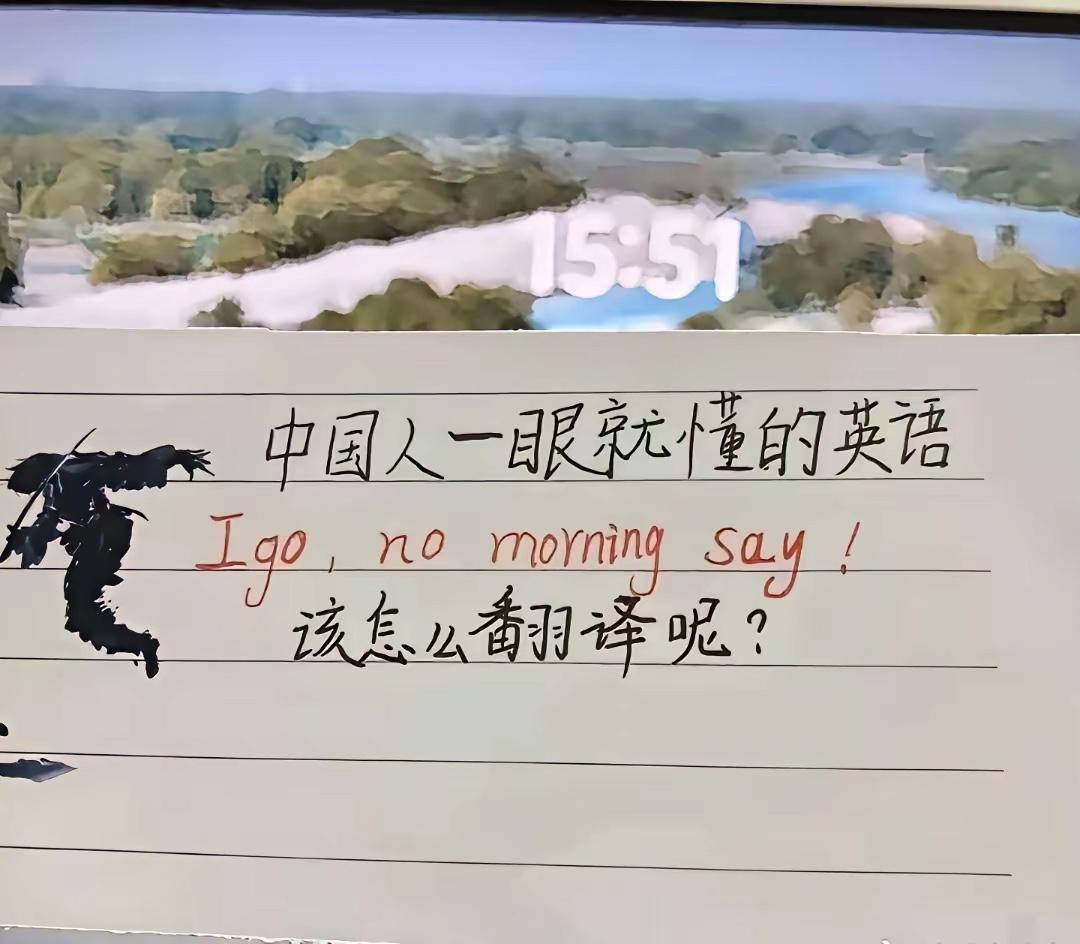 15:51
中国人一眼就懂的英语
I go, no morning say!
该怎么翻译呢?